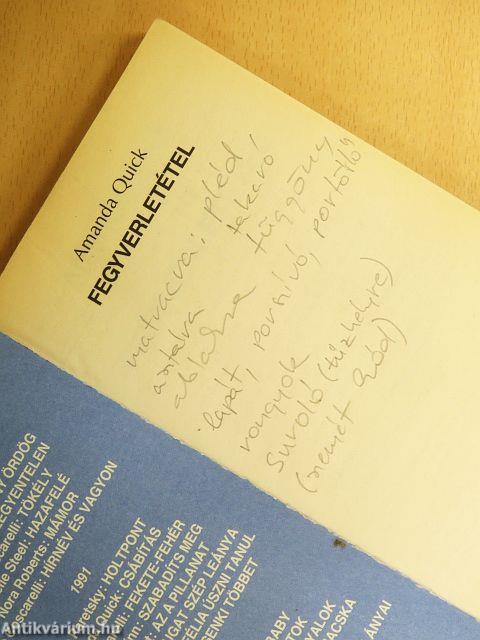 Amanda Quick
FEGYVERLETÉTEL
matracra: pléd,
takaró
asztalra
ablakra függöny
lapát, porszívó, portörlő
rongyok
Suroló (tűzhelyre)
Y ÖRDÖG
EGYENTELEN
scarelli: TÖKÉLY
ie Steel: HAZAFELÉ
Nora Roberts: MÁMOR
scarelli: HÍRNÉV ÉS VAGYON
1991
etsky: HOLTPONT
Quick: CSÁBÍTÁS
FEKETE-FEHÉR
SZABADÍTS MEG
AZ A PILLANAT
IGAT SZÉP LEÁNYA
ÉLIA ÚSZNI TANUL
SENKI TÖBBET
BABY
TOK
ALOK
ACSKA
ANYAI
Antikvárium.hu